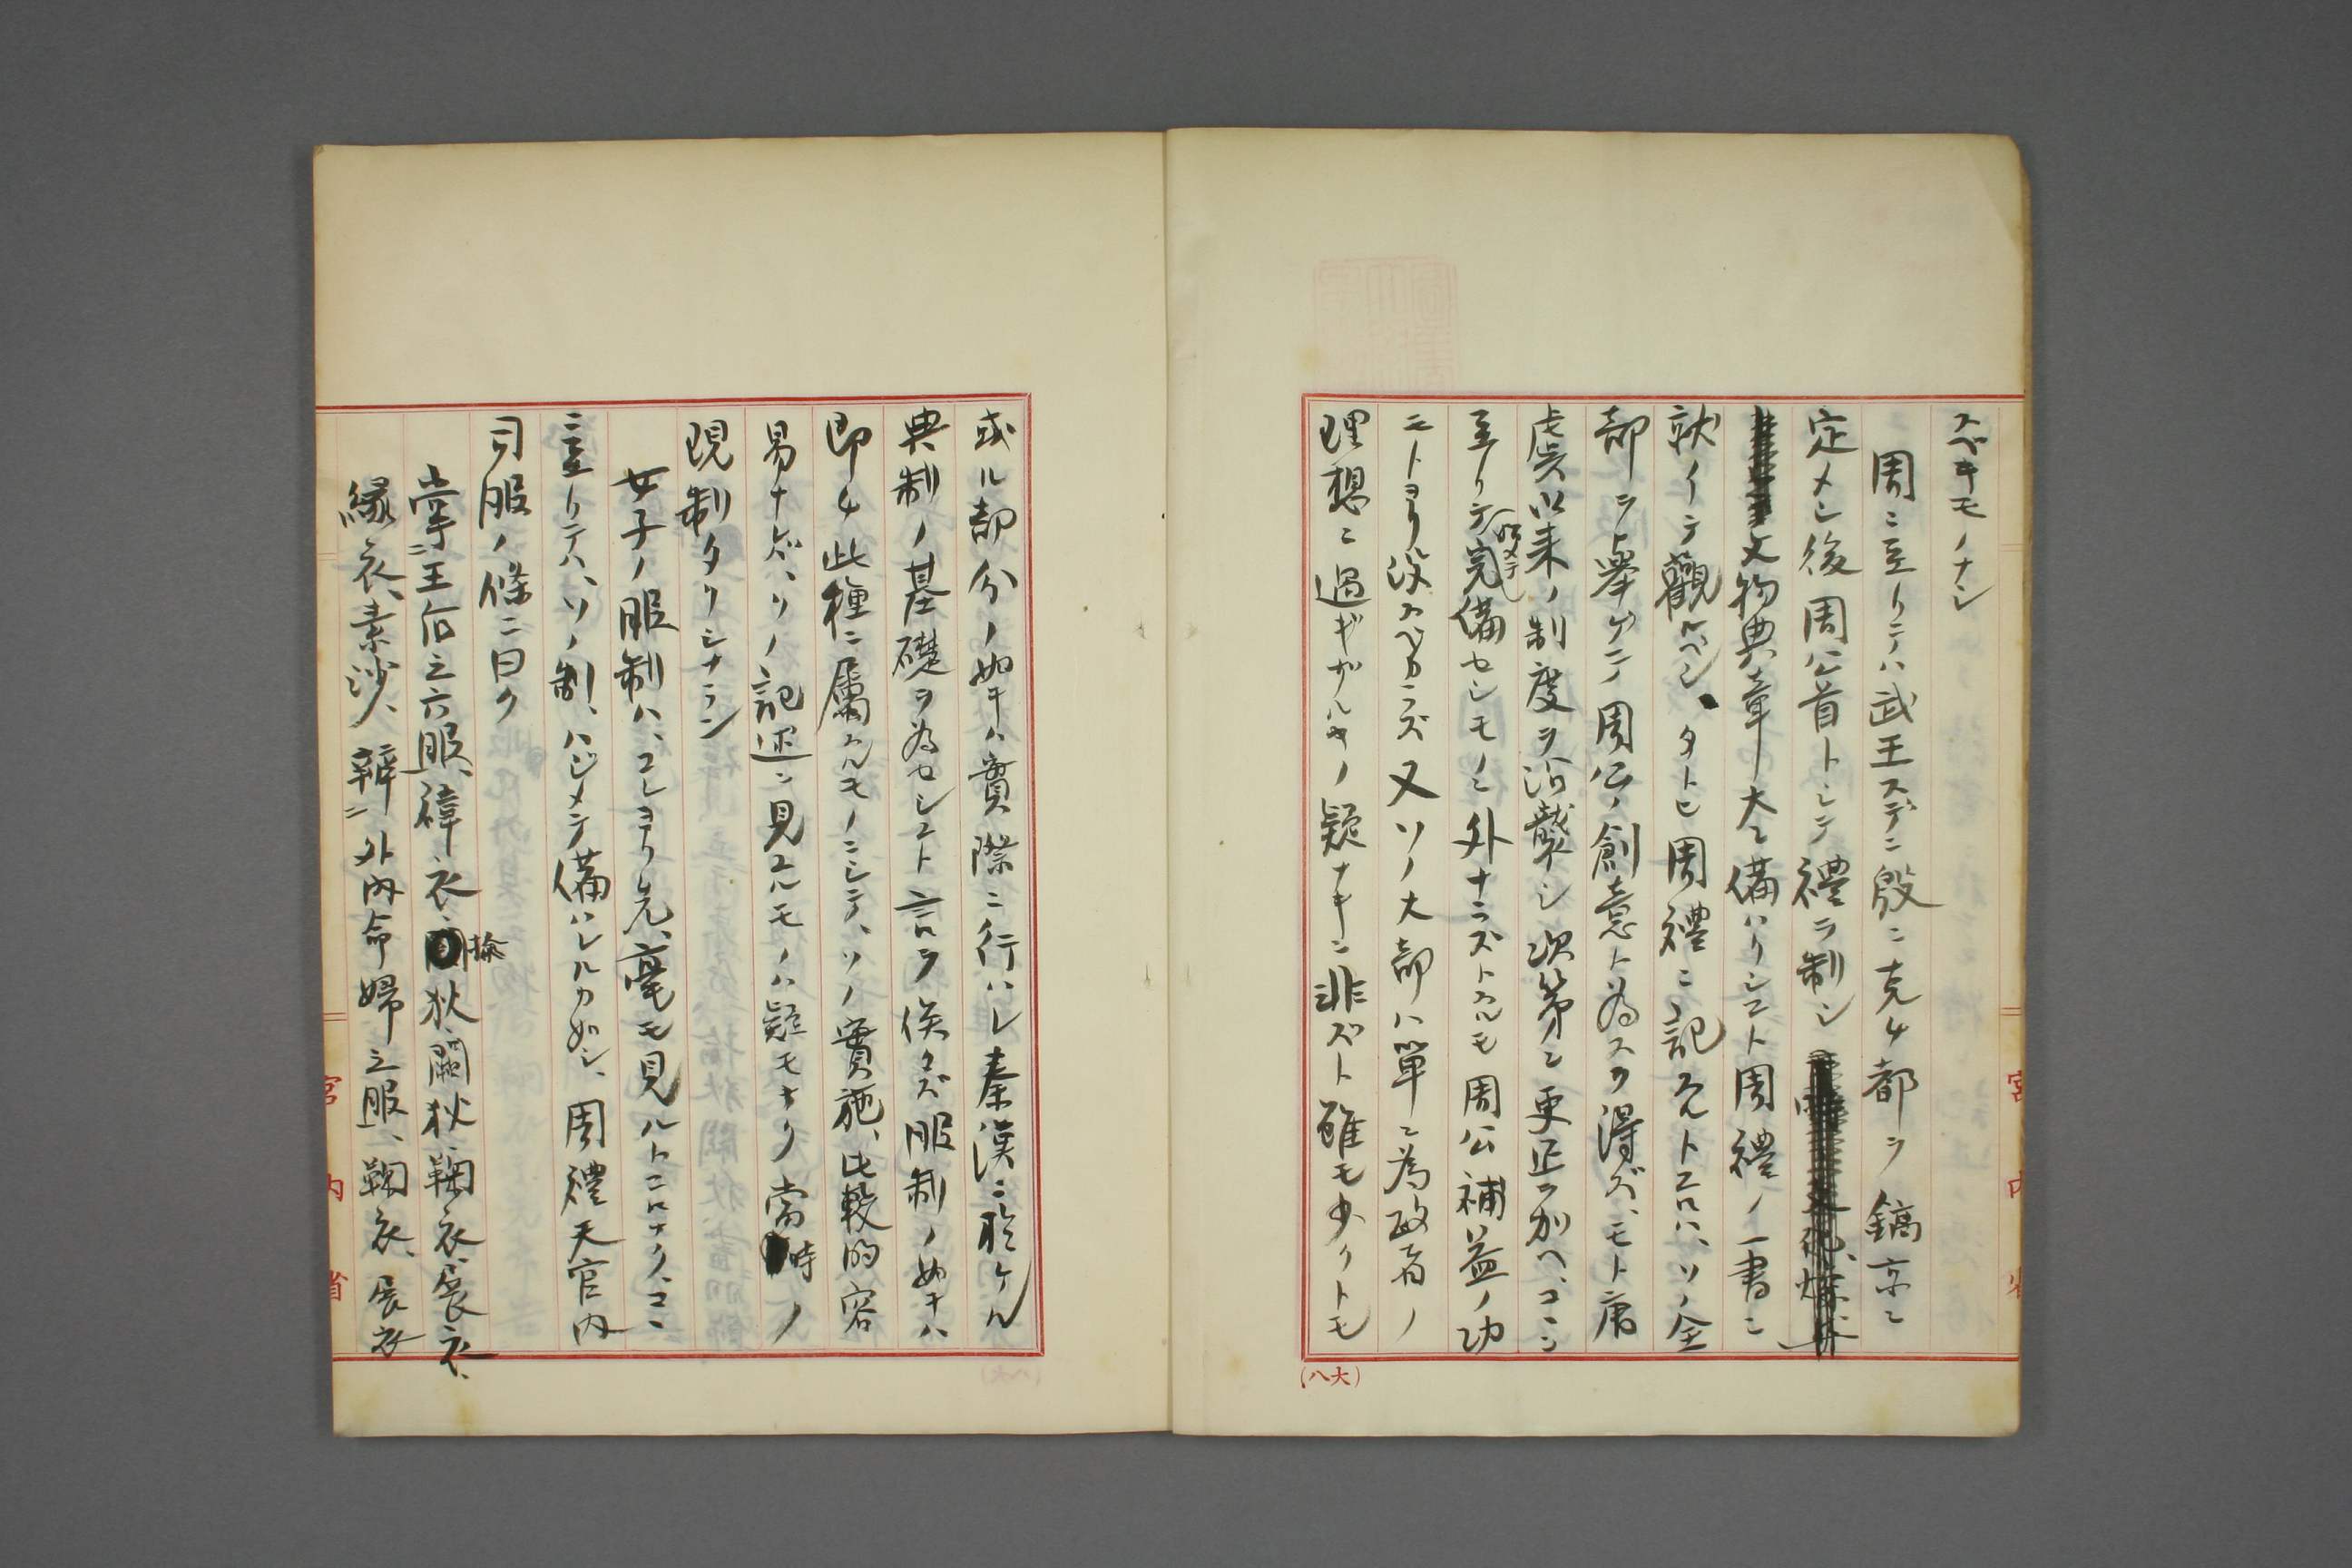 スベキモノナシ
周ニ至リテハ武王スデニ殷ニ克チ都ヲ鎬京ニ
定メシ後周公首トシテ禮ヲ制シ
文物典章大ニ備ハリシコト周禮ノ一書ニ
就イテ觀ルベシ、タトヒ周禮ニ記スルトコロハ、ソノ全
部ヲ擧ゲテ周公ノ創意ト為スヲ得ズ、モト唐
虞以来ノ制度ヲ沿襲シ次第ニ更正ヲ加ヘ、ココニ
至リテ始メテ完備セシモノニ外ナラズトスルモ周公補益ノ功
ニトヨリ没スベカラズ又ソノ大部ハ單ニ為政者ノ
理想ニ過ギザルヤノ疑ナキニ非ズト雖モ少クトモ
或ル部分ノ如キハ實際ニ行ハレ秦漢ニ於ケル
典制ノ基礎ヲ為セシコト言ヲ俟タズ服制ノ如キハ
即チ此種ニ屬スルモノニシテ、ソノ實施、比較的容
易ナレバ、ソノ記述ニ見ユルモノハ疑モナク當時ノ
現制タリシナラン
女子ノ服制ハ、コレヨリ先、毫モ見ルトコロナク、ココ
ニ至リテハ、ソノ制、ハジメテ備ハレルカ如シ、周禮天官内
司服ノ條ニ曰ク
掌ニ王后之六服、褘衣、揄狄、闕狄、鞠衣、展衣、
緣衣、素沙、辨ニ外内命婦之服、鞠衣、展衣
宮内省
宮内省
(八大)